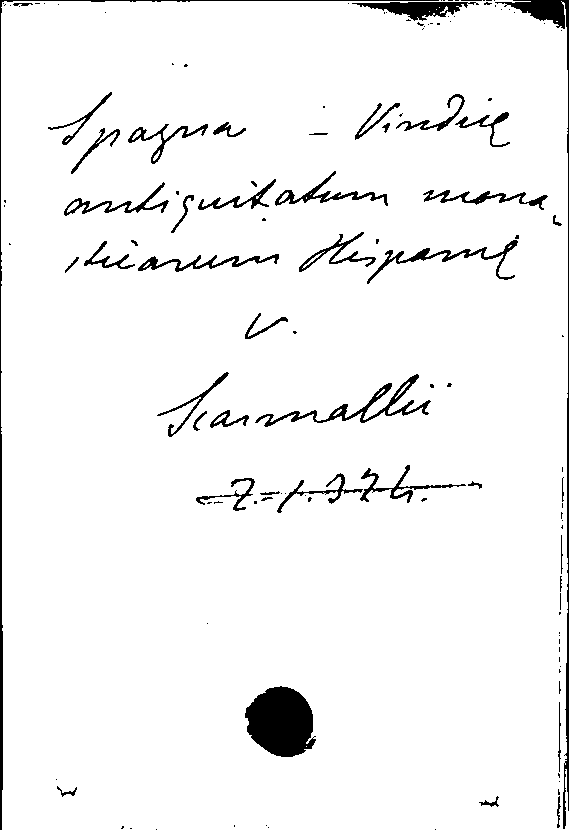 Spagna - Vindicię
antiquitatum mona-
sticarum Hispanię
V.
Scarmallii
Z.-1.374.